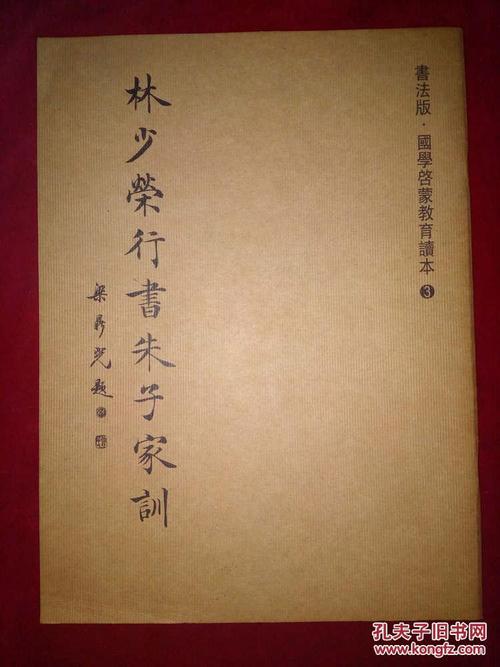 書法版·國學啓蒙教育讀本❸
林少榮行書朱子家訓
梁鼎光題
孔夫子旧书网
www.kongfz.com